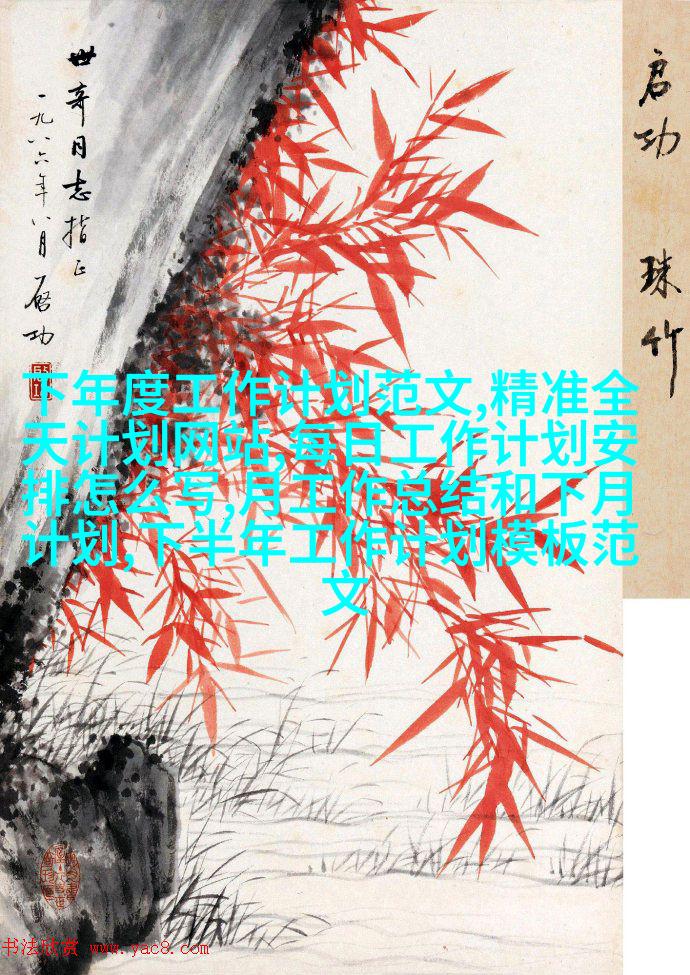 启功 珠竹
世奇同志指正
一九八六年八月 启功
下年度工作计划范文,精准全
天计划网站,每日工作计划安
排怎么写,月工作总结和下月
计划,下半年工作计划模板范
文
书法欣赏 www.yac8.com